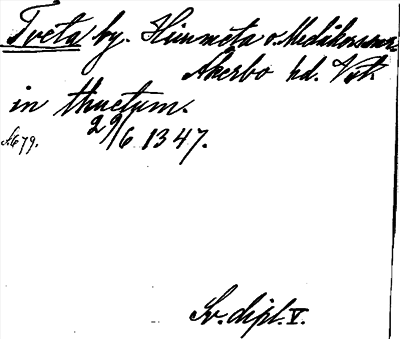 Tveta by. Himmeta o. Medåkers snr
Åkerbo hd. Vstm
in thuetum.
29/6 1347.
A679.
Sv. dipl. V.